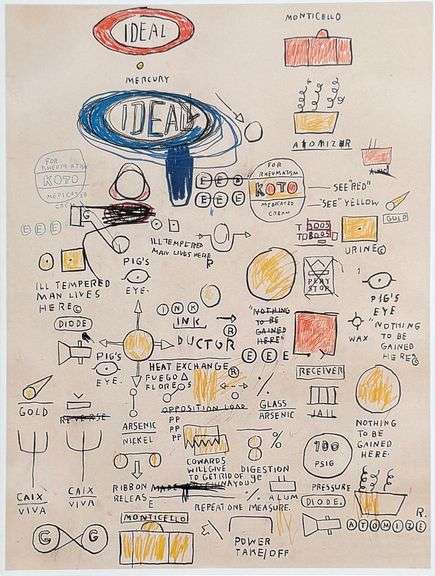 IDEAL
MONTICELLO
MERCURY
IDEAL
ATOMIZER
FOR
RHEUMATISM
KOTO
MEDICATED
CREAM
E E E
E E E
FOR
RHEUMATISM
KOTO
MEDICATED
CREAM
SEE "RED"
"SEE" YELLOW
GOLD
G
E E E
ILL TEMPERED
MAN LIVES HERE
TABOOS
TABOOS
URINE©
ILL TEMPERED
MAN LIVES
HERE©
PIG'S
EYE.
INK
INK
®
"NOTHING
TO BE
GAINED
HERE"
WAX
PIG'S
EYE
"NOTHING
TO BE
GAINED
HERE"©
DIODE
PIG'S
EYE.
DUCTOR
®
E E E
HEAT EXCHANGER
FUEGO
FLORES
RECEIVER
GOLD
REVERSE
OPPOSITION LOAD
GLASS
ARSENIC
JAIL
NOTHING
TO BE
GAINED
HERE.
ARSENIC
NICKEL
PP
PP
PP
%
100
PSIG
COWARDS
WILL GIVE
TO GET RID OF
YOU
DIGESTION
PRESSURE
CAIX
VIVA
CAIX
VIVA
RIBBON
RELEASE
ALUM
DIODE.
REPEAT ONE MEASURE.
ATOMIZE
R.
G G
MONTICELLO
POWER
TAKE/OFF